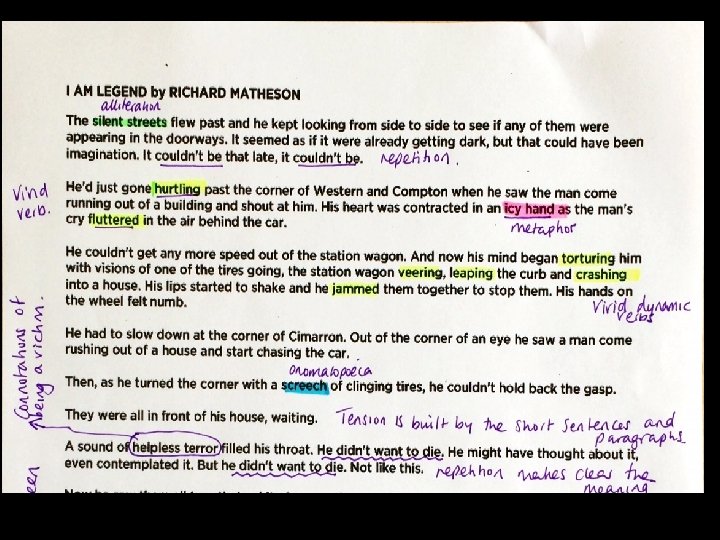 I AM LEGEND by RICHARD MATHESON
alliteration
The silent streets flew past and he kept looking from side to side to see if any of them were
appearing in the doorways. It seemed as if it were already getting dark, but that could have been
imagination. It couldn't be that late, it couldn't be. repetition.
Vivid
verb.
He'd just gone hurtling past the corner of Western and Compton when he saw the man come
running out of a building and shout at him. His heart was contracted in an icy hand as the man's
cry fluttered in the air behind the car.
metaphor
He couldn't get any more speed out of the station wagon. And now his mind began torturing him
with visions of one of the tires going, the station wagon veering, leaping the curb and crashing
into a house. His lips started to shake and he jammed them together to stop them. His hands on
the wheel felt numb.
Vivid dynamic
verbs
He had to slow down at the corner of Cimarron. Out of the corner of an eye he saw a man come
rushing out of a house and start chasing the car.
onomatopoeia
Then, as he turned the corner with a screech of clinging tires, he couldn't hold back the gasp.
They were all in front of his house, waiting. Tension is built by the short sentences and
paragraphs
Connotations of
being a victim.
A sound of helpless terror filled his throat. He didn't want to die. He might have thought about it,
even contemplated it. But he didn't want to die. Not like this. repetition makes clear the
meaning